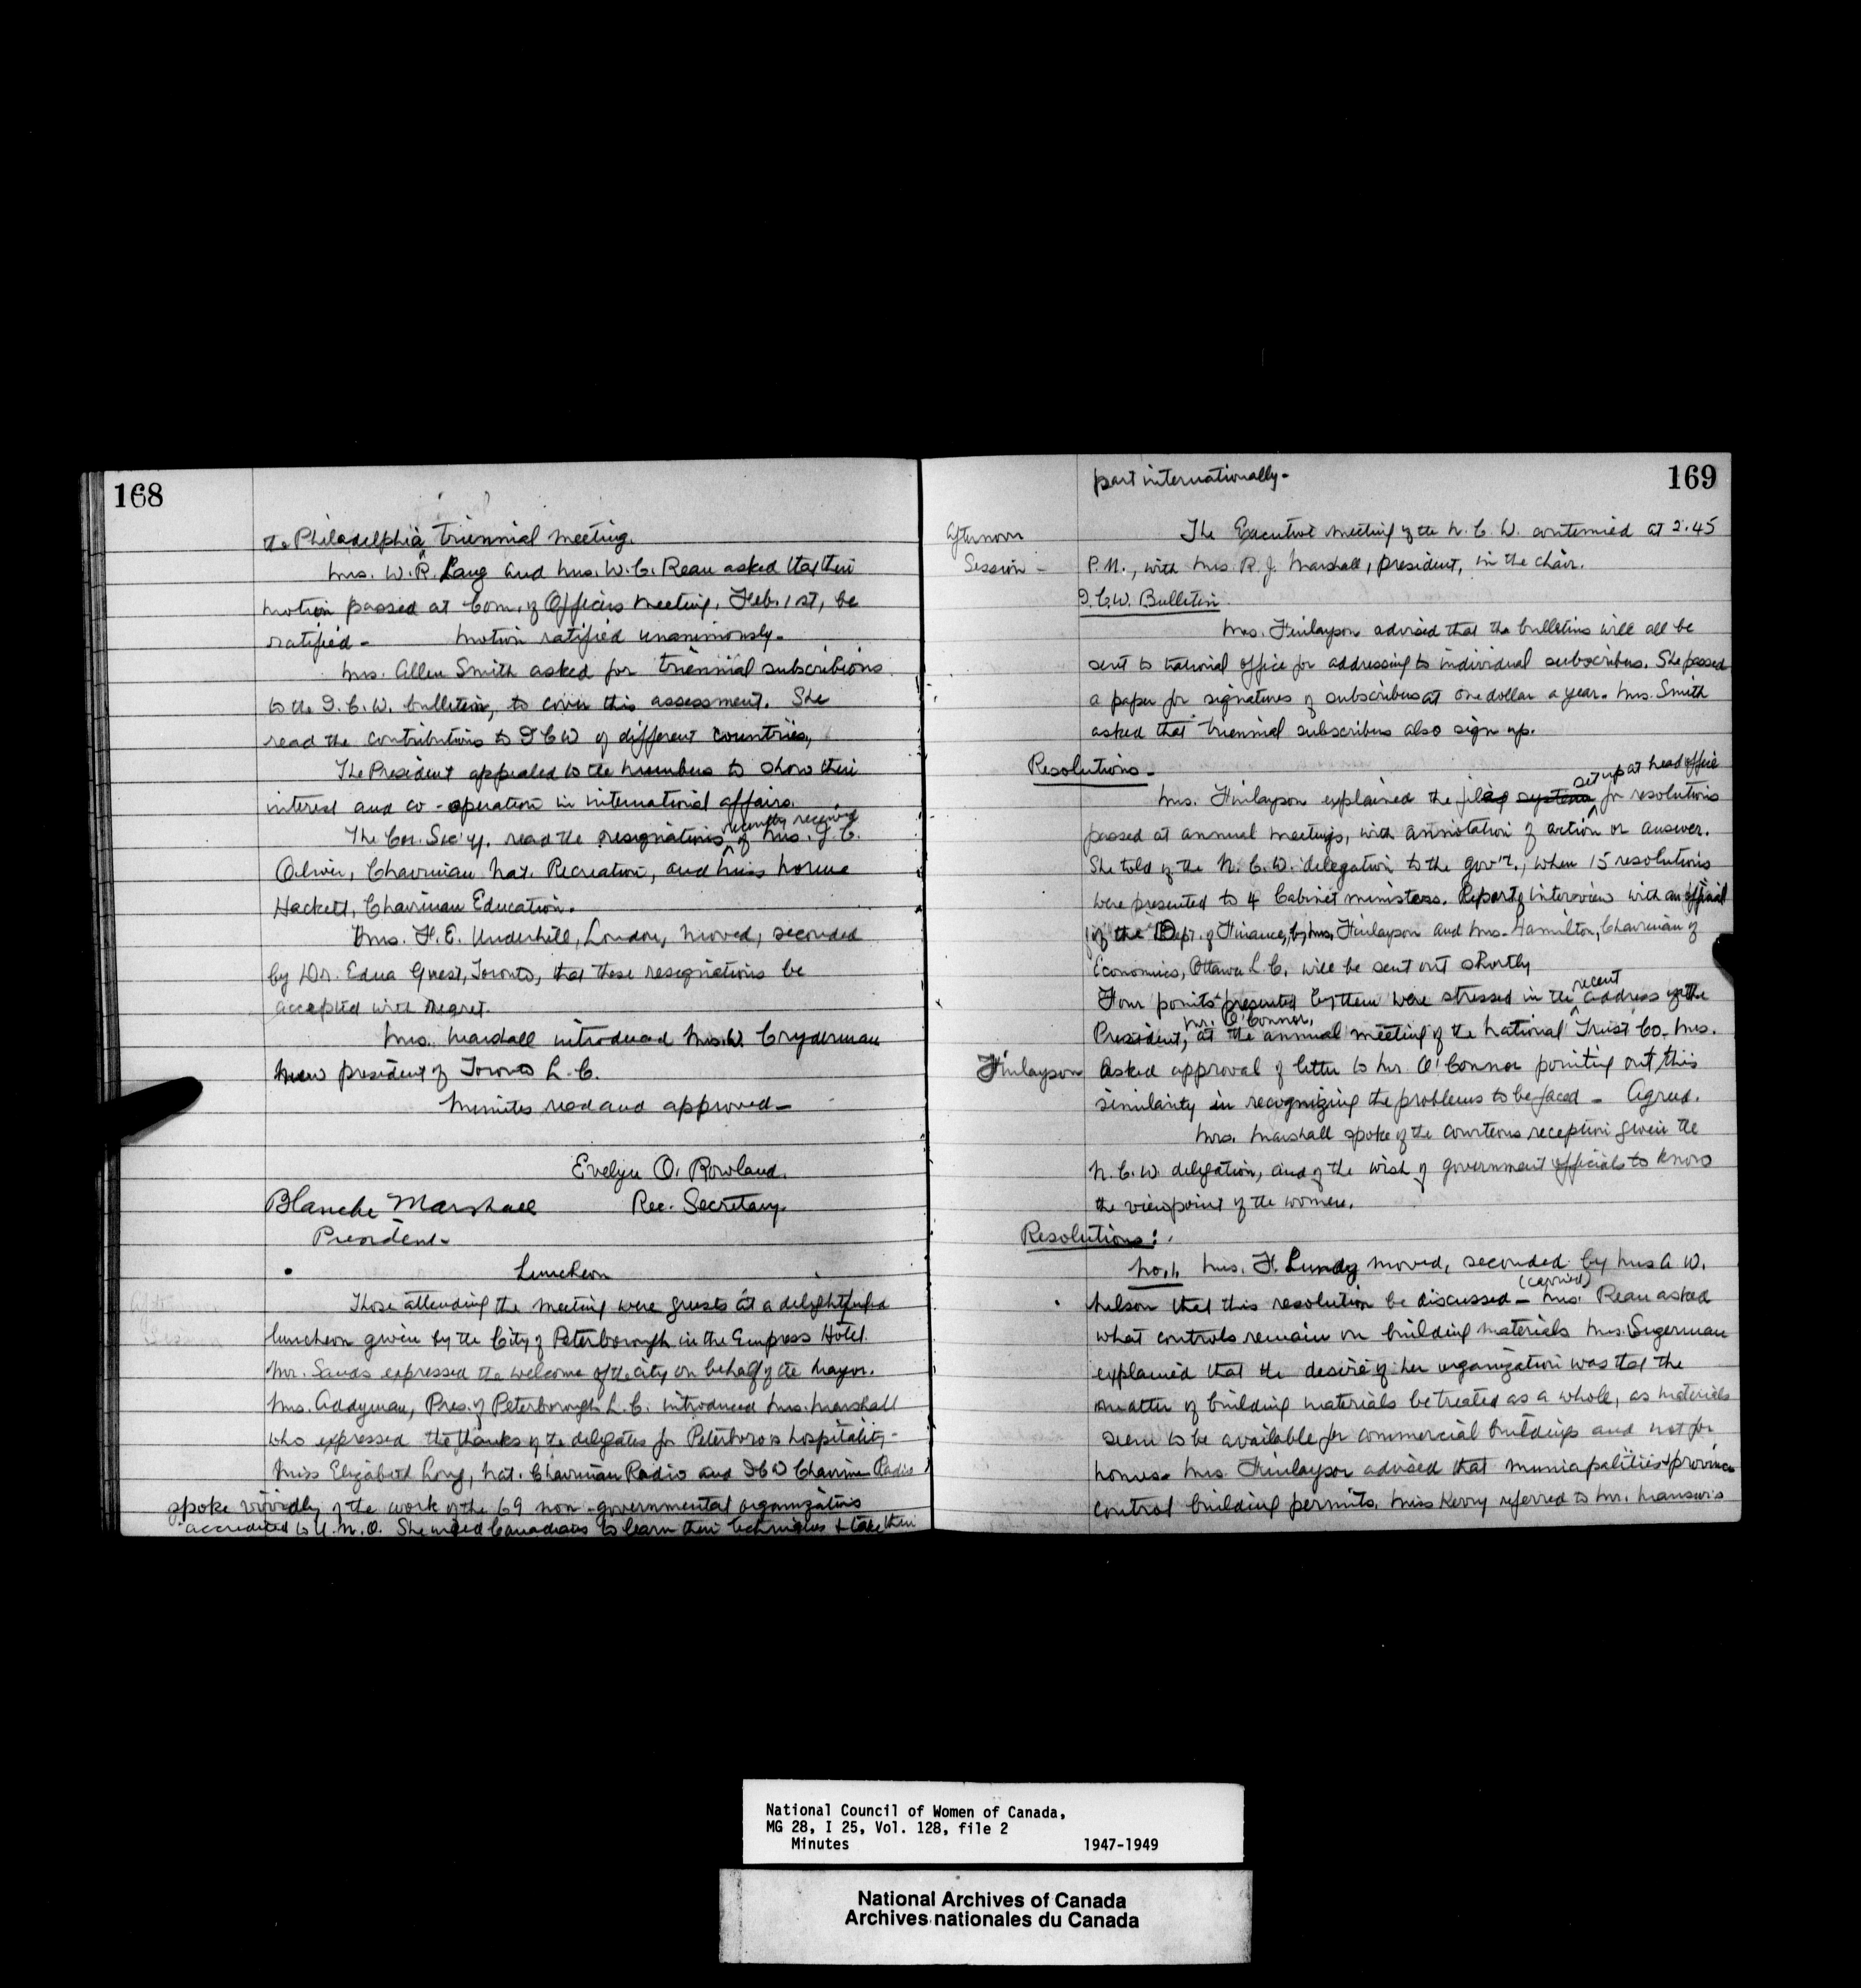 168
the Philadelphia triennial meeting.
Mrs. W.R. Lang and Mrs. W.C. Reau asked that their
motion passed at Com. of Officers meeting, Feb. 1st, be
ratified - Motion ratified unanimously -
Mrs. Allen Smith asked for triennial subscribions
to the I.C.W. bulletin, to cover this assessment. She
read the contributions to ICW of different countries,
The President appealed to the members to show their
interest and co-operation in international affairs.
recently received
The Cor. Sec'y. read the resignations of Mrs. J.C.
Oliver, Chairman Nat. Recreation, and Miss
Hackett, Chairman Education.
Mrs. F.E. Underhill, London, moved, seconded
by Dr. Edna Guest, Toronto, that these resignations be
accepted with regret.
Mrs. Marshall introduced Mrs. W. Cryderman
new president of Toronto L.C.
Minutes read and approved -
Evelyn O. Rowland.
Blanche Marshall Rec. Secretary
President -
Luncheon
Those attending the meeting were guests at a delightful
luncheon given by the City of Peterborough in the Empress Hotel.
Mr. Sands expressed the welcome of the city on behalf of the Mayor.
Mrs. Addyman, Pres. of Peterborough L.C. introduced Mrs. Marshall
who expressed the thanks of the delegates for Peterboro's hospitality -
Miss Elizabeth Long, Nat. Chairman Radio and ICW Chairman Radio
spoke vividly of the work of the 69 non-governmental organizations
accredited to U.N.O. She urged Canadians to learn their techniques & take their
169
part internationally -
Afternoon
Session -
The Executive meeting of the N.C.W. continued at 2.45
P.M., with Mrs. R.J. Marshall, president, in the chair.
I.C.W. Bulletin
Mrs. Finlayson advised that the bulletins will all be
sent to national office for addressing to individual subscribers. She passed
a paper for signatures of subscribers at one dollar a year. Mrs. Smith
asked that triennial subscribers also sign up.
Resolutions -
set up at head office
Mrs. Finlayson explained the system for resolutions
passed at annual meetings, with annotation of action or answer.
She told of the N.C.W. delegation to the gov't., when 15 resolutions
were presented to 4 Cabinet ministers. Report of interview with an official
of the Dept. of Finance, by Mrs. Finlayson and Mrs. Hamilton, Chairman of
Economics, Ottawa L.C. will be sent out shortly
recent
Four points presented by them were stressed in the address of the
Mr. O'Connor,
President, at the annual meeting of the National Trust Co. Mrs.
Finlayson asked approval of letter to Mr. O'Connor pointing out this
similarity in recognizing the problems to be faced - Agreed.
Mrs. Marshall spoke of the courteous reception given the
N.C.W. delegation, and of the wish of government officials to know
the viewpoint of the women.
Resolutions:
No.1. Mrs. F. Lundy moved, seconded by Mrs A W.
(carried)
Nelson that this resolution be discussed - Mrs. Reau asked
what controls remain on building materials Mrs. Sugerman
explained that the desire of her organization was that the
matter of building materials be treated as a whole, as materials
seem to be available for commercial buildings and not for
homes. Mrs. Finlayson advised that municipalities & provinces
control building permits. Miss Kerry referred to Mr.
National Council of Women of Canada,
MG 28, I 25, Vol. 128, file 2
Minutes 1947-1949
National Archives of Canada
Archives nationales du Canada